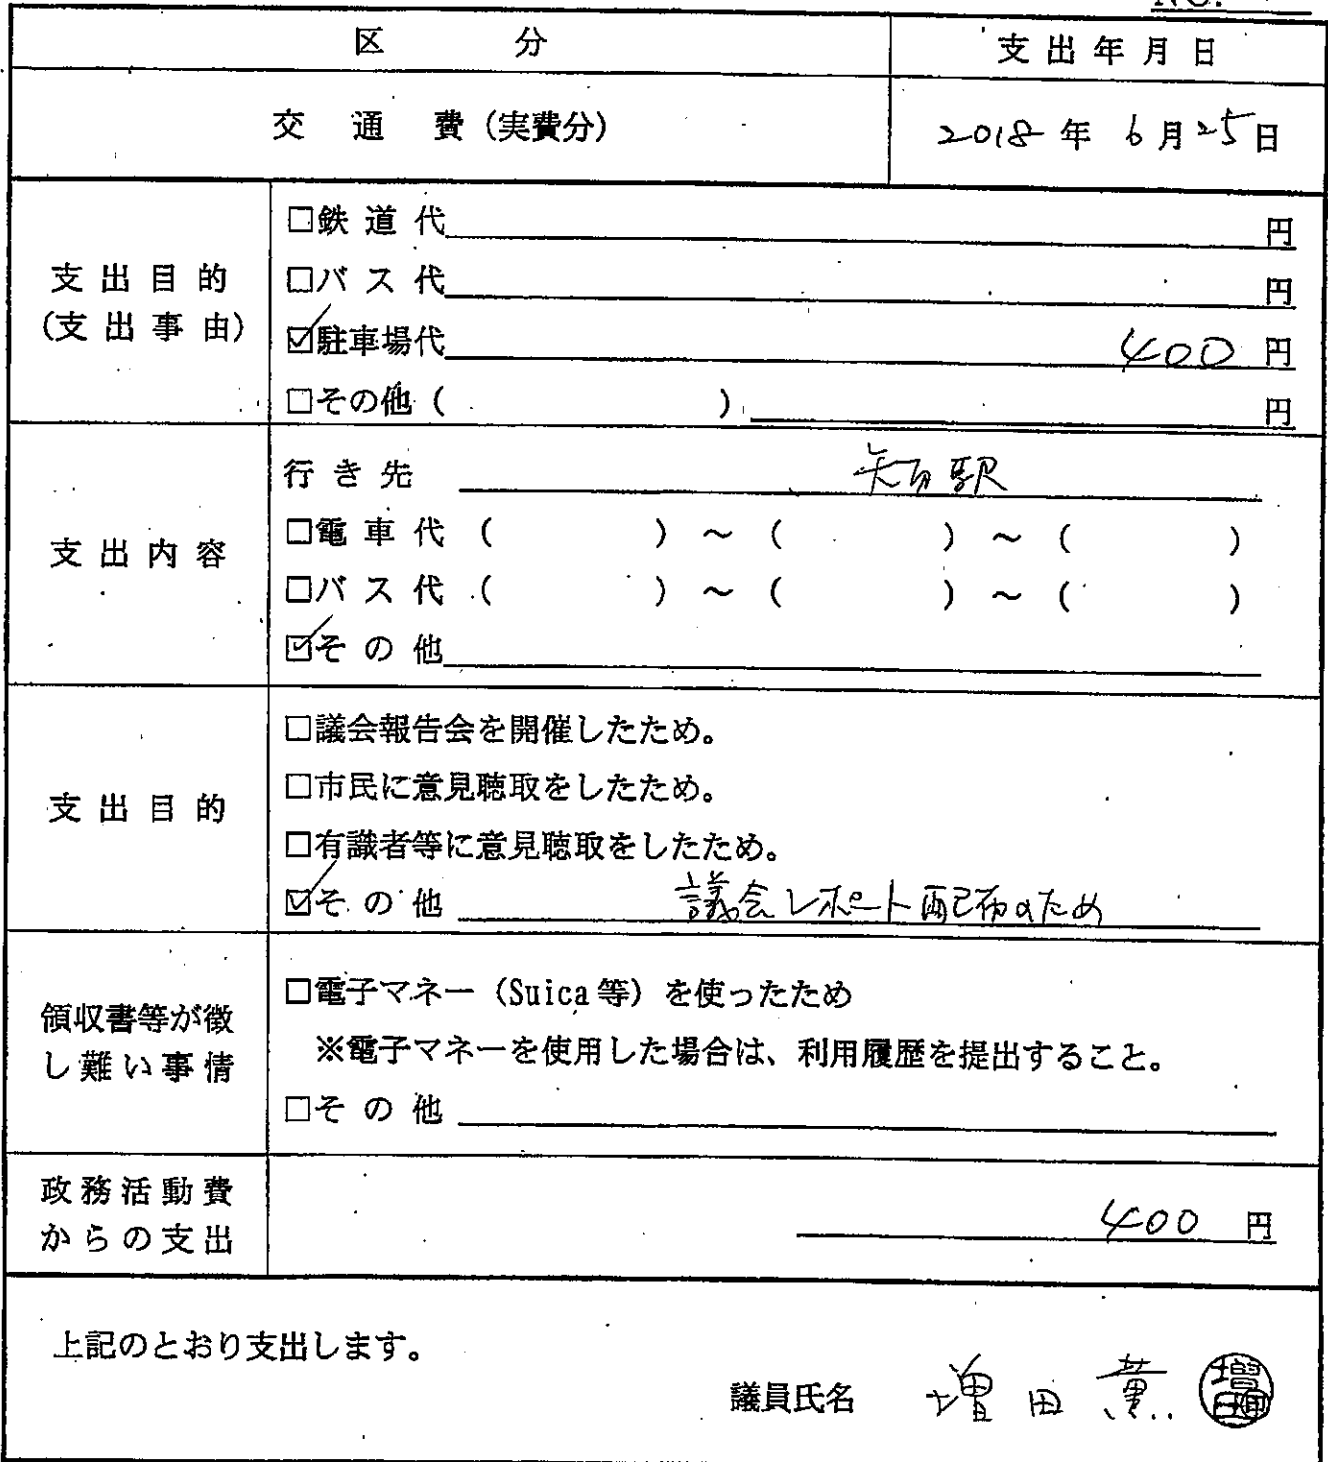 NO.
区 分 支出年月日
交 通 費 (実費分) 2018年 6月25日
支出目的
(支出事由)
□鉄道代 円
□バス代 円
☑駐車場代 400 円
□その他 ( ) 円
支出内容
行き先 駅
□電車代 ( ) ~ ( ) ~ ( )
□バス代 ( ) ~ ( ) ~ ( )
☑その他
支出目的
□議会報告会を開催したため。
□市民に意見聴取をしたため。
□有識者等に意見聴取をしたため。
☑その他 議会レポート配布のため
領収書等が徴
し難い事情
□電子マネー (Suica等) を使ったため
※電子マネーを使用した場合は、利用履歴を提出すること。
□その他
政務活動費
からの支出
400 円
上記のとおり支出します。
議員氏名 増田 薫 増田